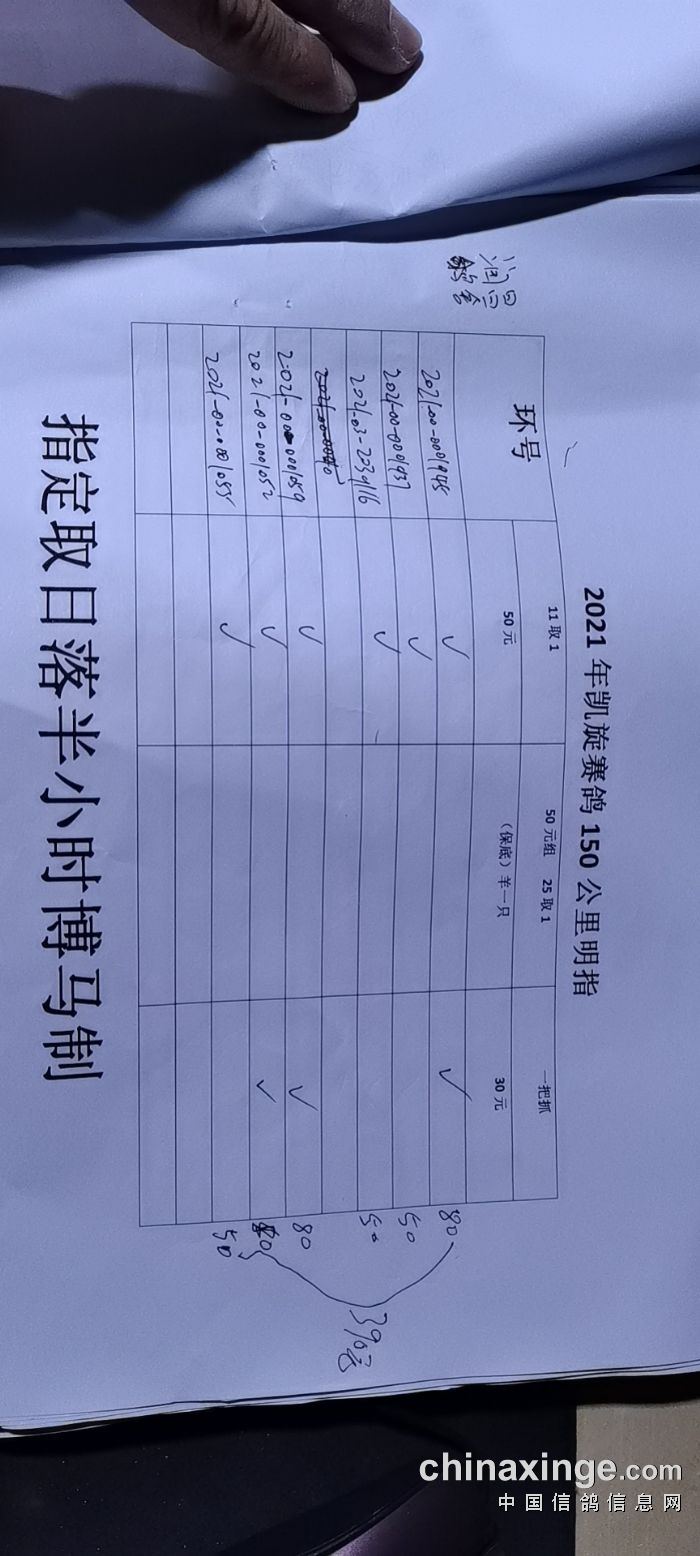 2021 年凯旋赛鸽 150 公里明指
润四
鸽舍
环号
11 取 1
50 元
50 元组 25 取 1
（保底）羊一只
一把抓
30 元
2021-00-0001948 ✓ ✓ 80
2021-00-0001937 ✓ 50
2021-03-2239116 ✓ 50
2021-00-0001059 ✓ ✓ 80
2021-00-0001052 ✓ ✓ 80
2021-00-0001055 ✓ 50
390元
指定取日落半小时博马制
chinaxinge.com
中国信鸽信息网